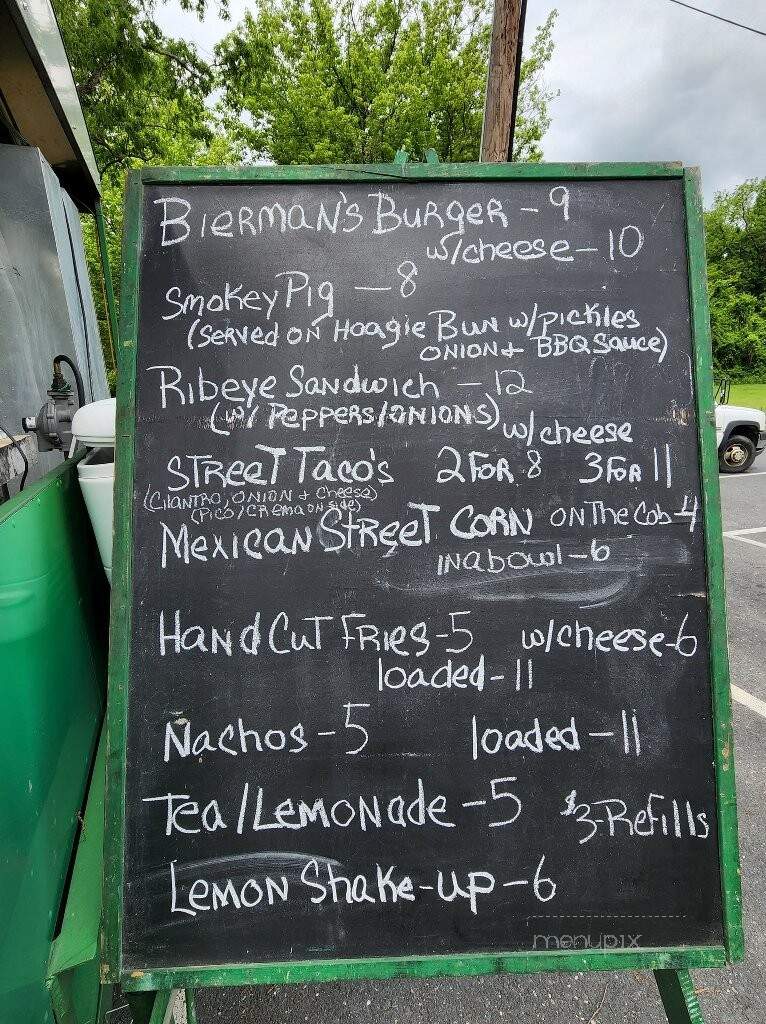 Bierman's Burger - 9
w/cheese - 10
Smokey Pig - 8
(Served on Hoagie Bun w/pickles
onion + BBQ Sauce)
Ribeye Sandwich - 12
(w/ Peppers/onions) w/cheese
Street Taco's 2 for 8 3 for 11
(Cilantro, onion + cheese)
(Pico/crema on side)
Mexican Street Corn on the Cob - 4
in a bowl - 6
Hand Cut Fries - 5 w/cheese - 6
loaded - 11
Nachos - 5 loaded - 11
Tea/Lemonade - 5 $3 - Refills
Lemon Shake-up - 6
menupix